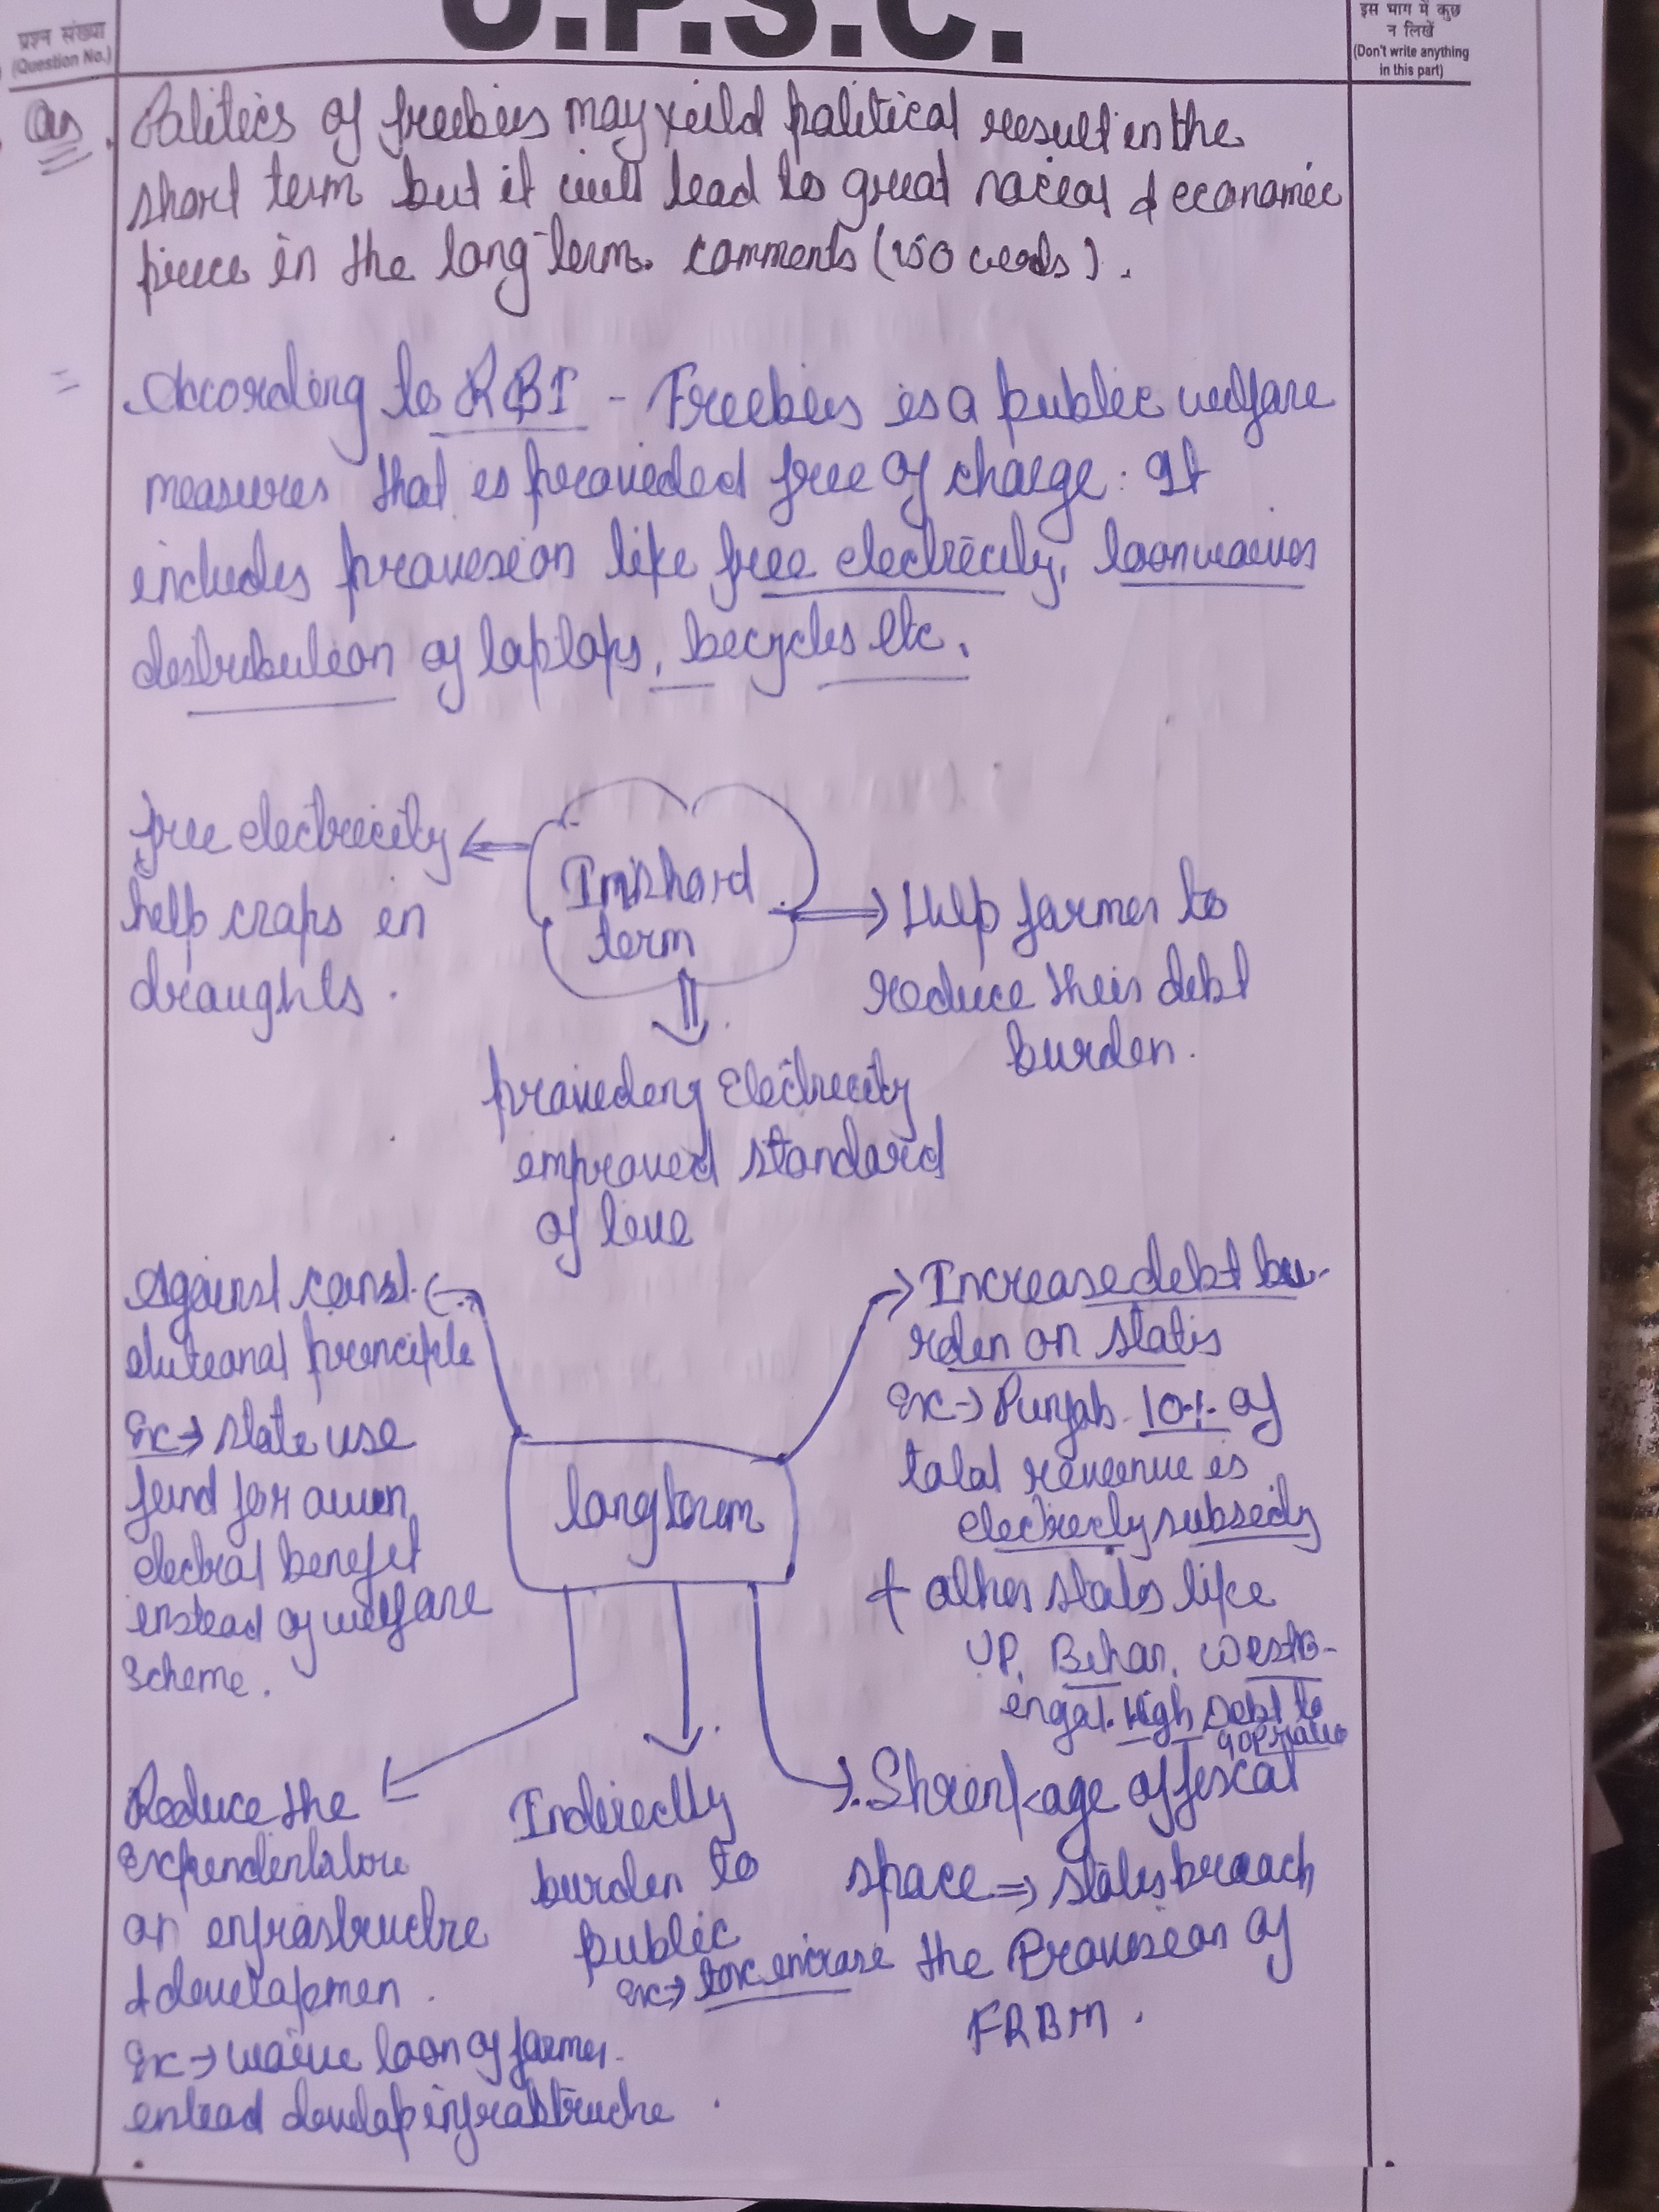 U.P.S.C.
प्रश्न संख्या
(Question No.)
इस भाग में कुछ
न लिखें
(Don't write anything
in this part)
Politics of freebies may yeild political result in the
short term but it will lead to great social & economic
piece in the long term. comments (150 words).
= According to RBI - Freebies is a public welfare
measures that is provided free of charge. It
includes provision like free electricity, loan waives
distribution of laptops, bicycles etc.
Free electricity
help crops in
draughts.
In short
term
Help farmer to
reduce their debt
burden.
providing Electricity
improved standard
of live
Against const-
itutional principle
Ex → state use
fund for own
electral benefit
instead of welfare
scheme.
long term
Increase debt bu-
rden on states
Ex → Punjab 10% of
total revenue is
electricity subsidy
+ other states like
UP, Bihar, West B-
engal. High Debt to
GDP ratio
Reduce the
on infrastructre
& developmen.
Ex → waive loan of farmer
develop infrastructure.
Indirectly
burden to
public
Ex → tax incrase
Shrinkage of fiscal
space ⇒ states breach
the Provision of
FRBM.